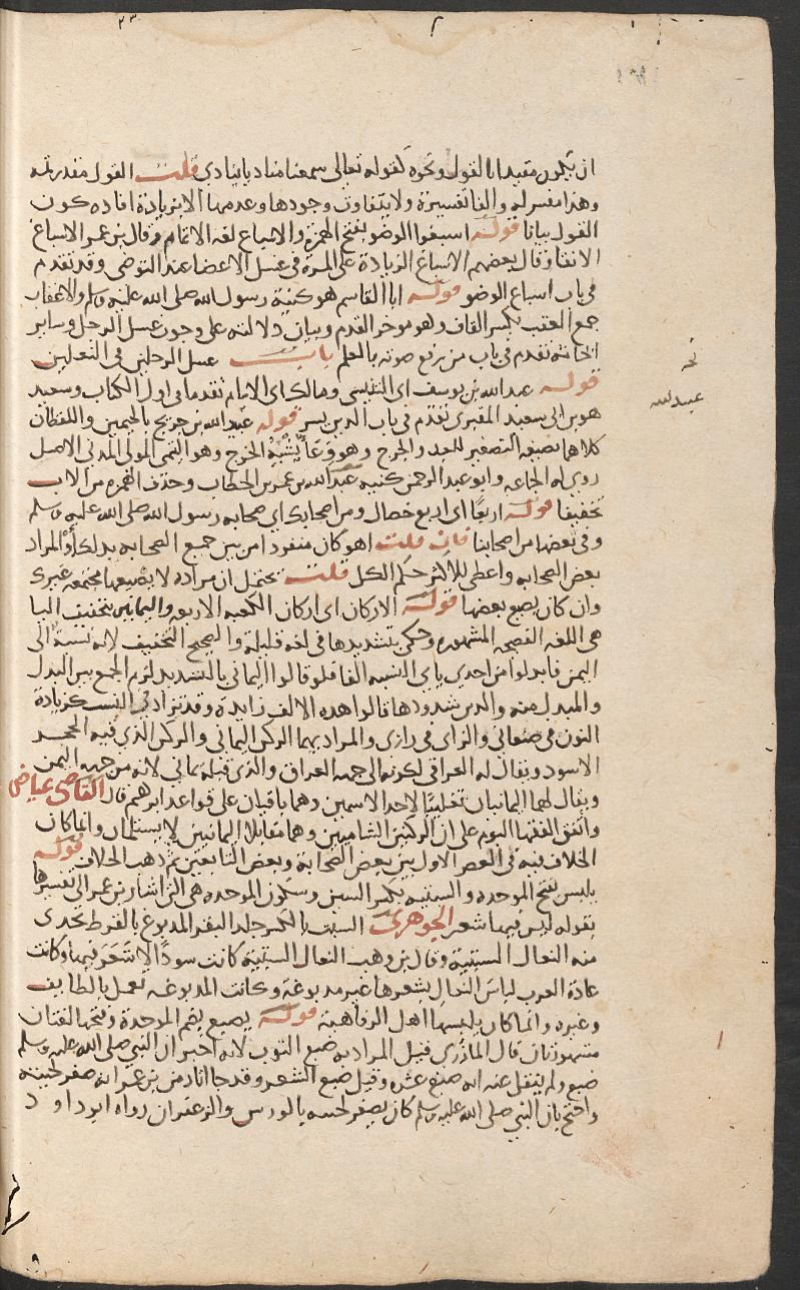 ان يكون مقيدا بالقول ونحوه كقوله تعالى سمعنا مناديا ينادي قلت القول مقدر ثمه
وهذا مفسر له والفا تفسيرية ولا يتفاوت وجودها وعدمها الا بزيادة افاده كون
القول بيانا قوله اسبغوا الوضو بفتح الهمزة والاسباغ لغه الاتمام وقال بن عمر الاسباغ
الانقا وقال بعضهم الاسباغ الزيادة على المرة في غسل الاعضا عند التوضي وقد تقدم
في باب اسباغ الوضو قوله ابا القاسم هو كنية رسول الله صلى الله عليه وسلم والاعقاب
جمع العقب بكسر القاف وهو موخر القدم وبيان دلالته على وجوب غسل الرجل وساير
ابحاثه تقدم في باب من رفع صوته بالعلم باب غسل الرجلين في النعلين
قوله عبد الله بن يوسف اي التنيسي ومالك اي الامام تقدما في اول الكتاب وسعيد
هو بن ابي سعيد المقبري تقدم في باب الدين يسر قوله عبيد الله بن جريج بالجيمين واللفظان
كلاهما بصيغه التصغير للعبد والجرج وهو وعا يشبه الخرج وهو التيمي المولى المدني الاصل
روى له الجماعه وابو عبد الرحمن كنيه عبد الله بن عمر بن الخطاب وحذف الهمزه من الاب
تخفيفا قوله اربعا اي اربع خصال ومن اصحابك اي صحابه رسول الله صلى الله عليه وسلم
وفي بعضها من اصحابنا فان قلت اهو كان منفردا من بين جميع الصحابه بذلك او المراد
بعض الصحابه واعطى للاكثر حكم الكل قلت يحتمل ان مراده لا يصنعها مجتمعه غيرك
وان كان يصنع بعضها قوله الاركان اي اركان الكعبه الاربعه واليمانين بتخفيف اليا
هي اللغه الفصيحه المشهوره وحكي تشديدها في لغه قليلة والصحيح التخفيف لانه نسبة الى
اليمن فابدلوا من احدى ياي النسبه الفا فلو قالوا اليماني بالتشديد لزم الجمع بين البدل
والمبدل منه والذين شددوها قالوا هذه الالف زايدة وقد تزاد في النسب كزيادة
النون في صنعاني والزاي في رازي والمراد بهما الركن اليماني والركن الذي فيه الحجر
الاسود ويقال له العراقي لكونه الى جهه العراق والذي قبله يماني لانه من جهه اليمن
ويقال لهما اليمانيان تغليبا لاحد الاسمين وهما باقيان على قواعد ابرهيم قال القاضي عياض
واتفق الفقها اليوم على ان الركنين الشاميين وهما مقابلا اليمانيين لا يستلمان وانما كان
الخلاف فيه في العصر الاول بين بعض الصحابة وبعض التابعين ثم ذهب الخلاف قوله
يلبس بفتح الموحده والسبتيه بكسر السين وسكون الموحده هي التي اشار بن عمر الى تفسيرها
بقوله ليس فيها شعر الجوهري السبت بالكسر جلد البقر المدبوغ بالقرظ تحذى
منه النعال السبتية وقال بن وهب النعال السبتية كانت سودا لا شعر فيها وكانت
عادة العرب لباس النعال بشعرها غير مدبوغة وكانت المدبوغه تعمل بالطايف
وغيره وانما كان يلبسها اهل الرفاهية قوله يصبغ بضم الموحدة وفتحها لغتان
مشهورتان قال المازري قيل المراد به صبغ الثوب لانه اخبر ان النبي صلى الله عليه وسلم
صبغ ولم ينقل عنه انه صبغ شعره وقيل صبغ الشعر وقد جا اثار عن بن عمر انه صفر لحيته
واحتج بان النبي صلى الله عليه وسلم كان يصفر لحيته بالورس والزعفران رواه ابو داود
عبد الله